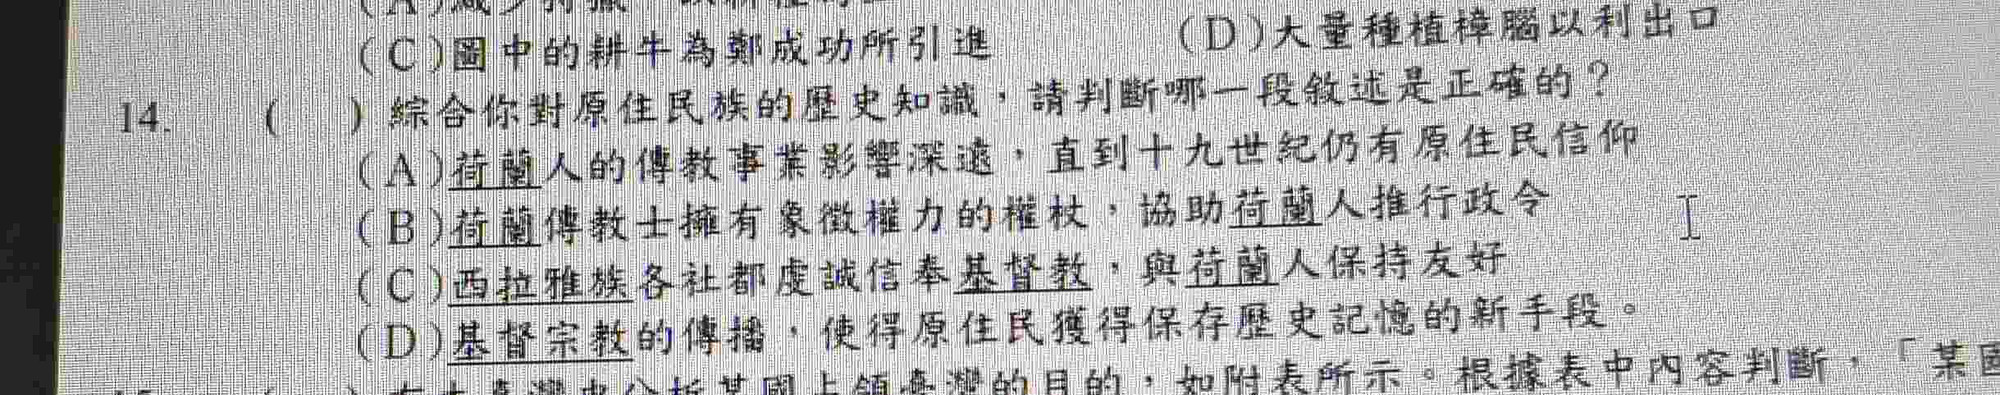 (C)圖中的耕牛為鄭成功所引進 (D)大量種植樟腦以利出口
14. ( ) 綜合你對原住民族的歷史知識，請判斷哪一段敘述是正確的？
(A)荷蘭人的傳教事業影響深遠，直到十九世紀仍有原住民信仰
(B)荷蘭傳教士擁有象徵權力的權杖，協助荷蘭人推行政令
(C)西拉雅族各社都虔誠信奉基督教，與荷蘭人保持友好
(D)基督宗教的傳播，使得原住民獲得保存歷史記憶的新手段。
的目的，如附表所示。根據表中內容判斷，「某國